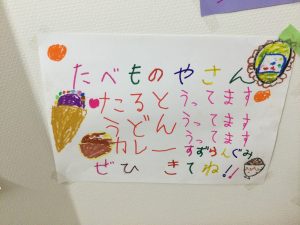 たべものやさん
たると うってます
うどん うってます
カレー うってます
すずらんぐみ
ぜひ きてね!!